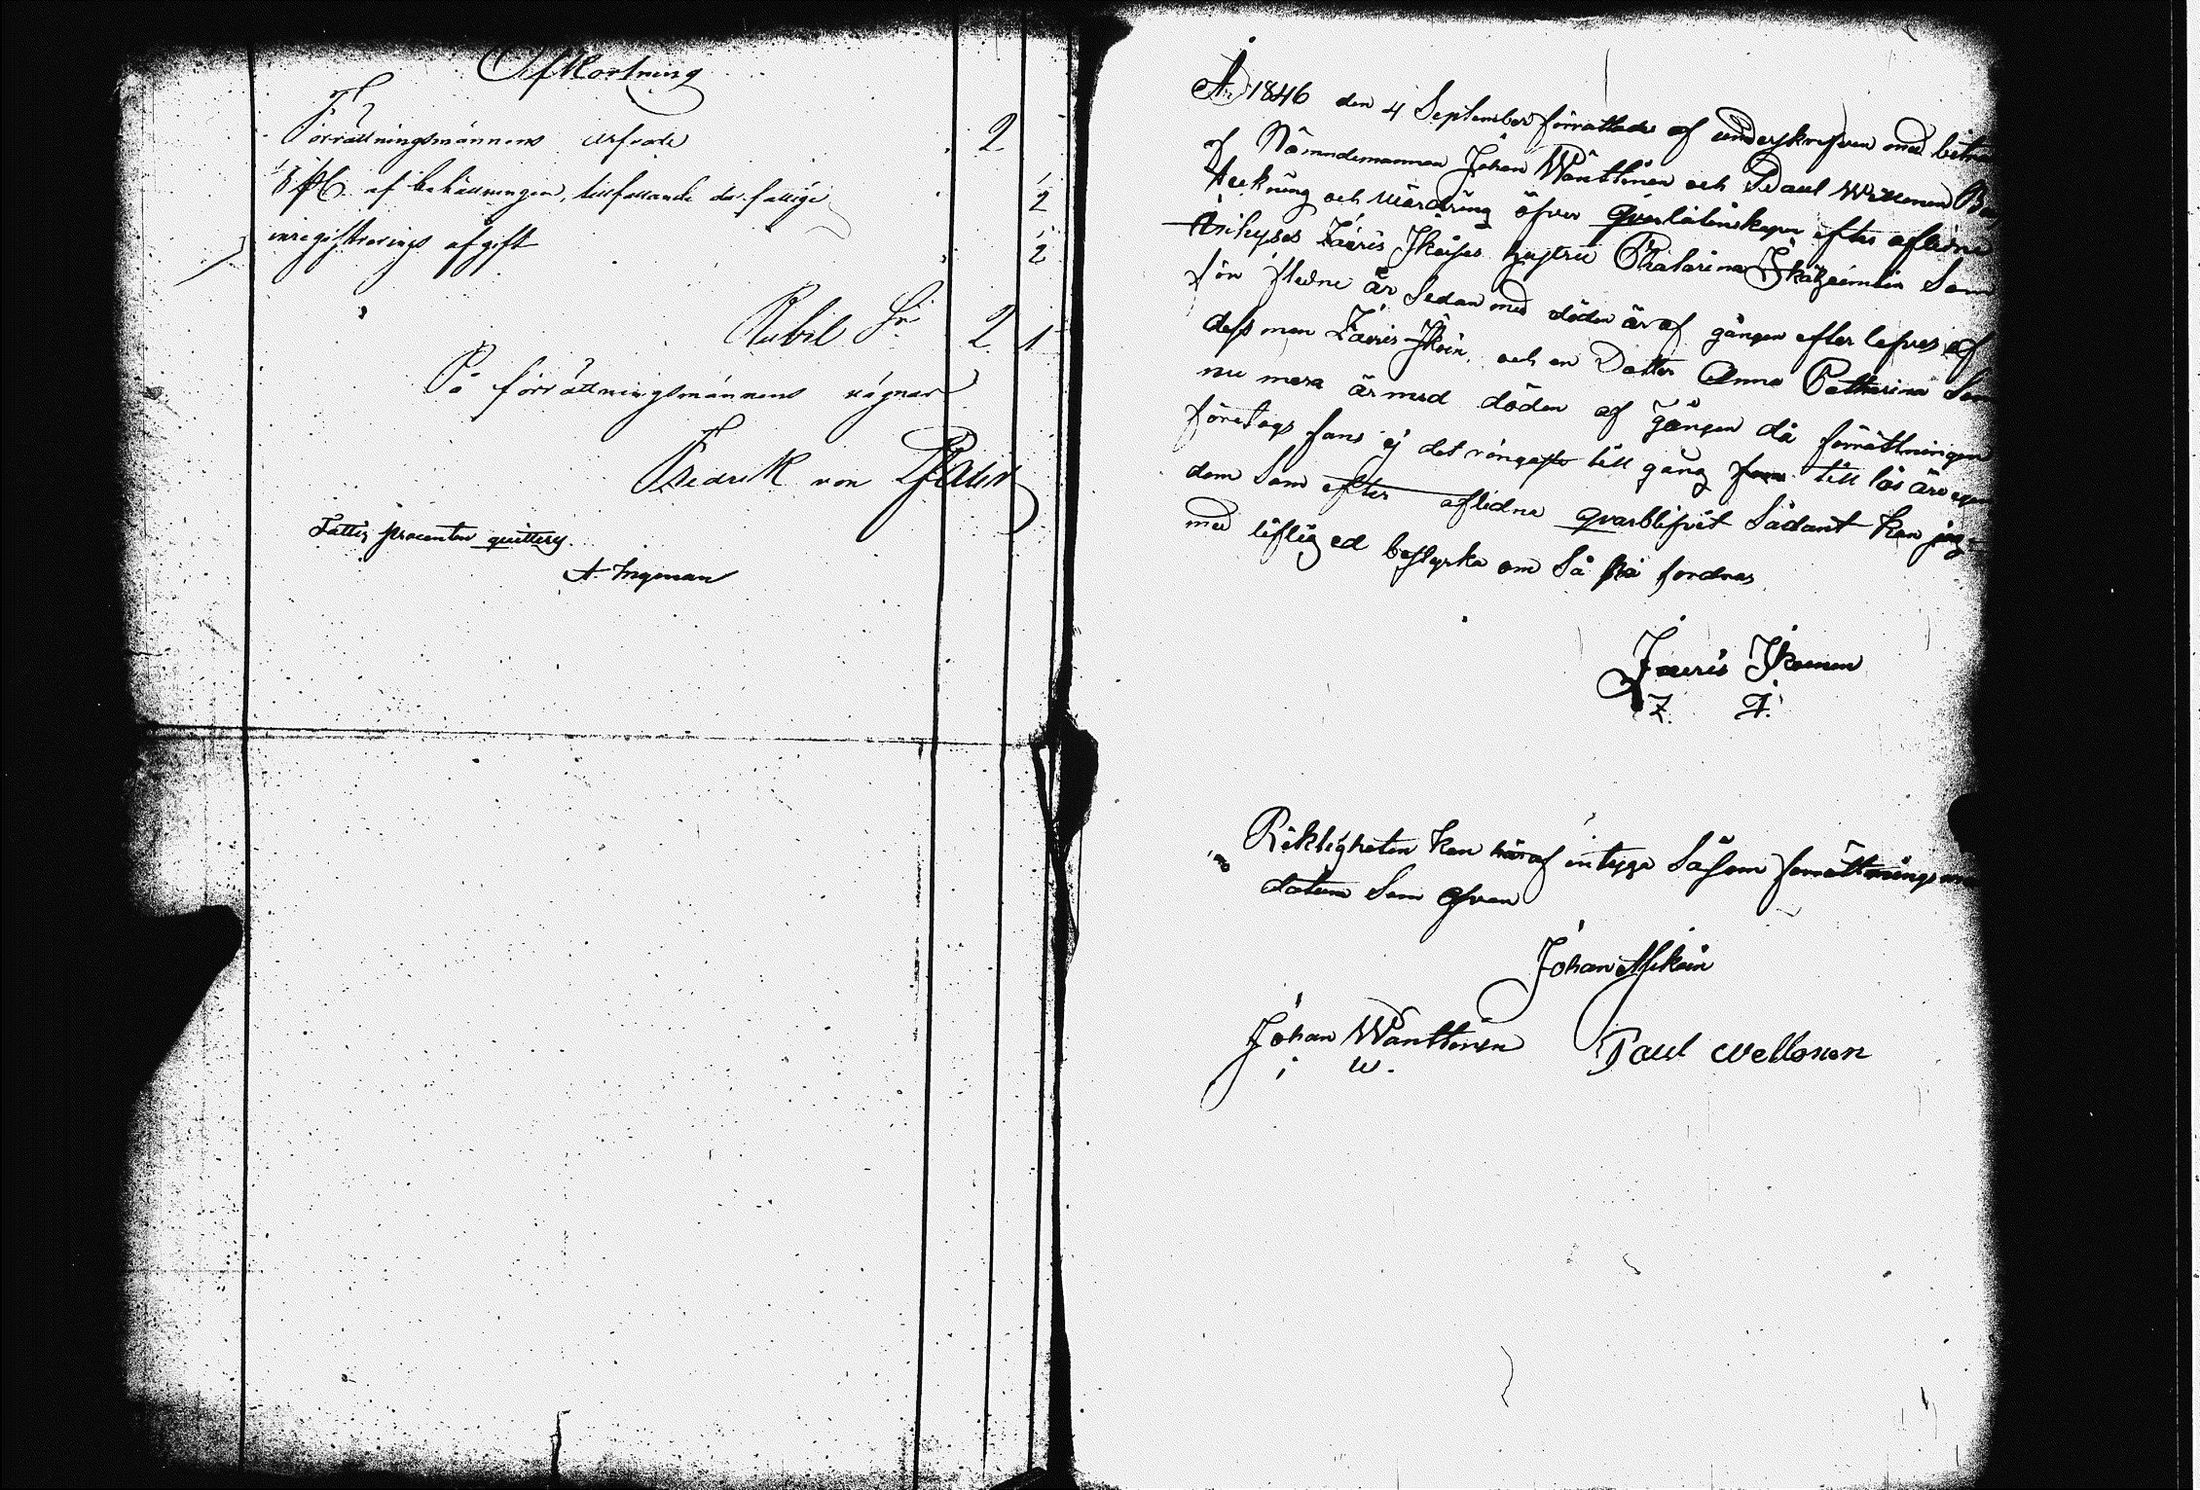 Afkortning
Förrättningsmännens arfvode 2
1/8 pC. af behållningen, tillfallande de fattige 2
inregistrerings afgift 2
Rubel Sr 2. 1
På förrättningsmännens vägnar
Fredrik von Pfaler
Fattig procenten quitterz.
A. Ingman
År 1846 den 4 September förrättades af underskrefven med
af Nämndemannen Johan Wänttinen och Paul Wellonen
teckning och värdring öfver qvarlåtenskapen efter aflidne
Inhyses Zacris Ikoises hustru Chatarina Som
för flere år Sedan med döden är af gången efter lefves af
dess man Zacris Ikoin, och en Dotter Anna Catharina Som
nu mera är med döden af gången då förrättningen
företogs fans ej det ringaste till gång till lös äro egen
dom Som efter aflidne qvarblifvit Sådant kan jag
med liflig ed bestyrka om Så på fordras
Zacris Ikoinen
Z. I.
Riktigheten kan häraf intyga Såsom förrättnings
datum Som ofvan
Johan
Johan Wänttinen Paul Wellonen
i W.